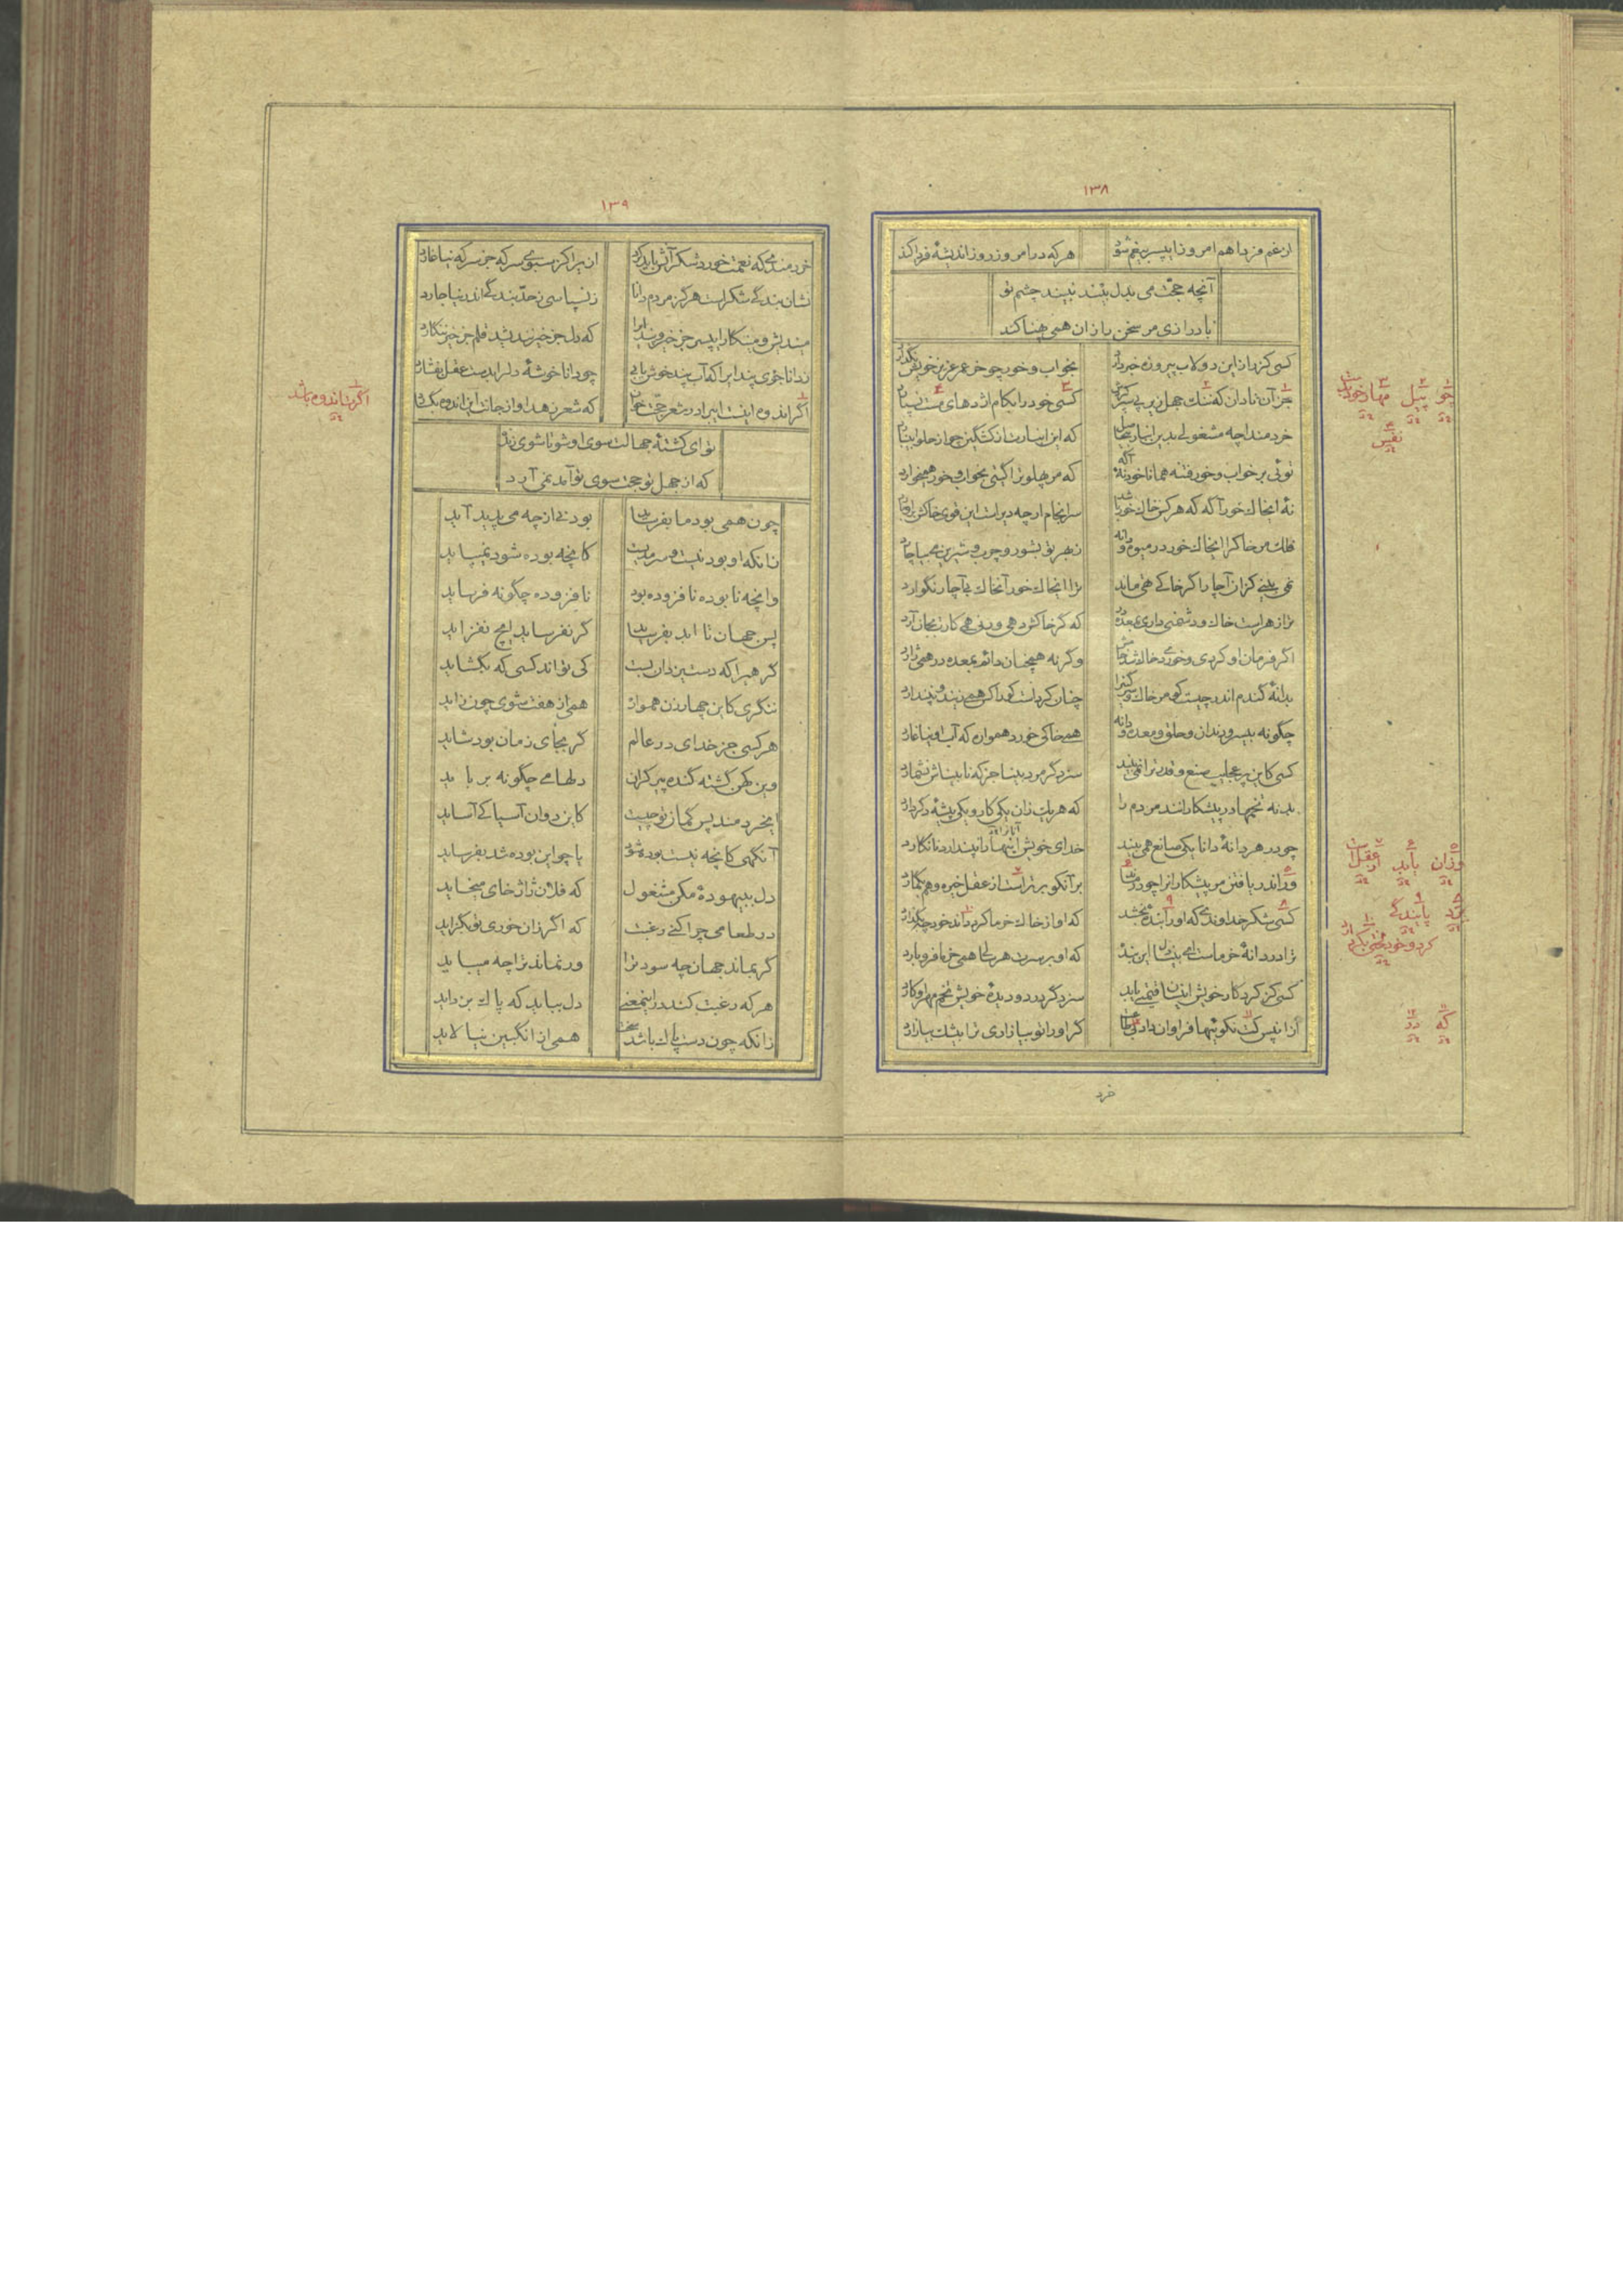 ۱۳۸
از غم فردا هم امروز ای پسر بیغم شود
هر که در امروز روز اندیشهٔ فردا کند
آنچه حجت می بدل بیند نبیند چشم تو
با درازی مر سخن را زان همی پهنا کند
کسی کز راز این دولاب پیروزه خبر دارد
بخواب و خور چو خر عمر عزیز خویش نگذارد
جز آن نادان که ننگ جهل زیر پی سپر کردش
کسی خود را بکام اژدهای مست نسپارد
خردمندا چه مشغولی بدین انبار بیحاصل
که این انبارت از کشکین چو از حلوا بینبارد
توئی بر خواب و خور فتنه همانا خود نهٔ آگه
که مر پهلوت را گیتی بخواب و خور همیخارد
نهٔ اینجا خور آگه که هر کس خاک خور باشد
سرانجام ارچه دیر است این قوی خاکش بیوبارد
فلک مر خاک را اینجا خور در میوه و دانه
ز بهر تو بشور و چرب و شیرین می بیاچارد
نمی بینی کزان آچار اگر خاکی تهی ماند
ترا اینجا خور آنخاک بی آچار نگوارد
ترا زهر است خاک و دشمنی داری بمعده در
که گر خاکش دهی ورنی همی کارت بجان آرد
اگر فرمان او کردی و خوردی خاک شد خامش
وگرنه همچنان دائم بمعده در همی ژارد
بدانهٔ گندم اندر چیست کو مر خاک و سرگین را
چنان کرده است کورا کس همی زیندو نپندارد
چگونه بی سرو دندان و حلق و معده دانه
همه خاکی خورد همواره کآب او بیاغارد
کسی کاین پر عجایب صنع و قدرت را نمی بیند
سزد گر مرد بینا جز که نابیناش نشمارد
بدنه تخمها در پیشکارانند مردم را
که هر یک زان یکی کار و یکی پیشه دگر دارد
چو در هر دانهٔ دانا یکی صانع همی بیند
خدای خویش اینها را نپندارد نانگارد
ور اندر یافتن مر پیشکاران را چو درماند
بر آنکو برتر است از عقل خیره وهم نگمارد
کسی شکر خداوندی که او را بندهٔ بخشد
که او از خاک خرما کرد داند خود چه بگذارد
ترا در دانهٔ خرماست ای بیدل این بنده
که او بر سرت هر سالی همی خرما فرو بارد
کسی کز کردگار خویش از اینسان قیمتی یابد
سزد گر در دو دیدهٔ خویش تخم مهر او کارد
از آنپس کت نکوئیها فراوان داد بی طاعت
گر او را تو بیازاری ترا بیشک بیازارد
خرد
۱۳۹
خردمندی که نعمت خورد شکر آنش باید کرد
ازیرا کز سبوی سرکه جز سرکه نیاغارد
نشان بندگی شکر است هرگز مردم دانا
ز نسپاسی ز حد بندگی اندر نیاجارد
میندیش و منگار ای پسر جز خیر و پند ایرا
که دل جز خیر نندیشد قلم جز خیر ننگارد
ز دانا جوی پند ایرا که آب پند خوش یابی
چو دانا خوشهٔ دلرا بدست عقل بفشارد
اگر اندوه اینست ای برادر شعر حجت خوان
که شعر زهد او از جانت این اندوه بگسارد
تو ای کشتهٔ جهالت سوی او شو تا شوی زنده
که از جهل تو حجت سوی تو آمد نمی آرد
چون همی بود ما بفرساید
بودنی از چه می پدید آید
زانکه او بود نیست و سرمدیست
کانچه بوده شود نمیپاید
وانچه نابوده نافزوده بود
نافزوده چگونه فرساید
پس جهان تا ابد بفرساید
گر نفرساید ایچ نفزاید
گرهی را که دست یزدان بست
کی تواند کسی که بگشاید
ننگری کاین چهار زن هموار
همی از هفت شوی چون زاید
هر کسی جز خدای در عالم
گر بجای زمان بود شاید
وین کهن گشته گنده پیر گران
دلهای چگونه برباید
ایخردمند پس گمان تو چیست
کاین دوان آسیا کی آساید
آنگهی کانچه نیست بوده شود
یا چو این بوده شد بفرساید
دل ببیهودهٔ مکن مشغول
که فلان ژاژ خای میخاید
در طعامی چرا کنی رغبت
که اگر زان خوری تو بگزاید
گر بماند جهان چه سود ترا
ور نماند ترا چه میباید
هر که رغبت کند درین معنی
دل بباید که پاک بزداید
زانکه چون دست پاک باشد سخت
همی از انگبین نیالاید